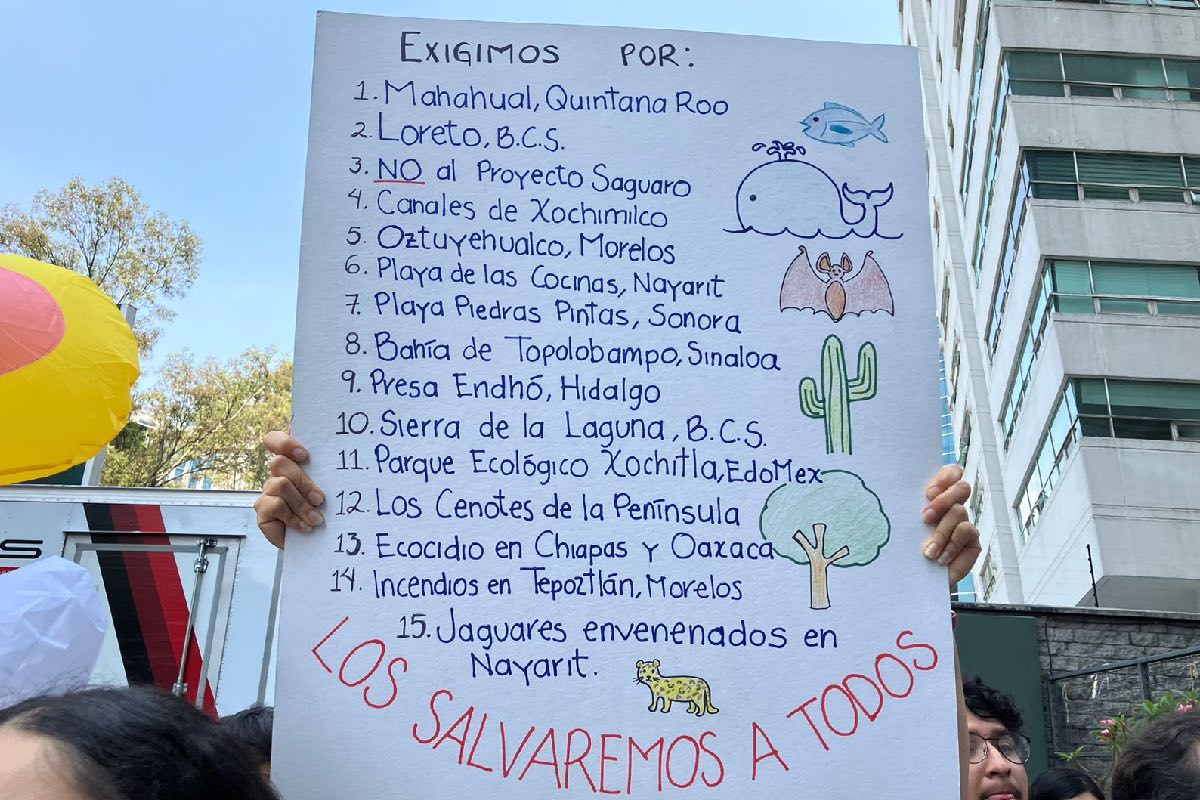 EXIGIMOS POR:
1. Mahahual, Quintana Roo
2. Loreto, B.C.S.
3. NO al Proyecto Saguaro
4. Canales de Xochimilco
5. Oztuyehualco, Morelos
6. Playa de las Cocinas, Nayarit
7. Playa Piedras Pintas, Sonora
8. Bahía de Topolobampo, Sinaloa
9. Presa Endhó, Hidalgo
10. Sierra de la Laguna, B.C.S.
11. Parque Ecológico Xochitla, EdoMex
12. Los Cenotes de la Península
13. Ecocidio en Chiapas y Oaxaca
14. Incendios en Tepoztlán, Morelos
15. Jaguares envenenados en
Nayarit.
LOS SALVAREMOS A TODOS